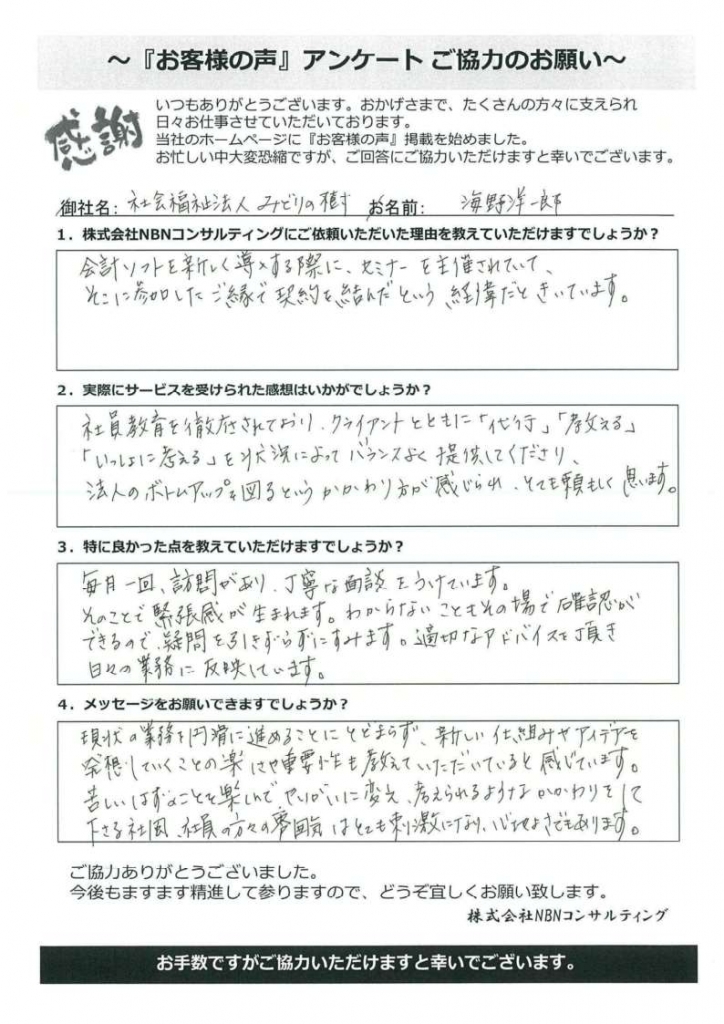 ～『お客様の声』アンケート ご協力のお願い～
感謝
いつもありがとうございます。おかげさまで、たくさんの方々に支えられ
日々お仕事させていただいております。
当社のホームページに『お客様の声』掲載を始めました。
お忙しい中大変恐縮ですが、ご回答にご協力いただけますと幸いでございます。
御社名: 社会福祉法人 みどりの樹 お名前: 海野洋一郎
1．株式会社NBNコンサルティングにご依頼いただいた理由を教えていただけますでしょうか？
会計ソフトを新しく導入する際に、セミナーを主催されていて、
そこに参加したご縁で契約を結んだという経緯だときいています。
2．実際にサービスを受けられた感想はいかがでしょうか？
社員教育を徹底されており、クライアントとともに「代行」「教える」
「いっしょに考える」を状況によってバランスよく提供してくださり、
法人のボトムアップを図るというかかわり方が感じられ、とても頼もしく思います。
3．特に良かった点を教えていただけますでしょうか？
毎月一回、訪問があり、丁寧な面談をうけています。
そのことで緊張感が生まれます。わからないこともその場で確認が
できるので、疑問を引きずらずにすみます。適切なアドバイスを頂き
日々の業務に反映しています。
4．メッセージをお願いできますでしょうか？
現状の業務を円滑に進めることにとどまらず、新しい仕組みやアイデアを
発想していくことの楽しさや重要性も教えていただいていると感じています。
苦しいはずのことを楽しんで、やりがいに変え、考えられるようなかかわりをして
下さる社風、社員の方々の雰囲気はとても刺激になり、心地よさでもあります。
ご協力ありがとうございました。
今後もますます精進して参りますので、どうぞ宜しくお願い致します。
株式会社NBNコンサルティング
お手数ですがご協力いただけますと幸いでございます。